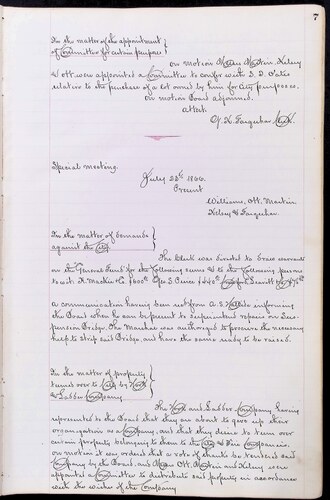 7
In the matter of the appointment
of Committee for certain purposes
On motion Martin, Kelsey
& Ott were appointed a Committee to confer with S. D. Oates
relative to the purchase of a lot owned by him for City purposes.
On motion Board adjourned.
Attest.
Farquhar Clerk.
Special meeting.
July 23d 1866.
Present
Williams, Ott. Martin
Kelsey & Farquhar
In the matter of demands
against the City
The Clerk was directed to draw warrants
on the General Fund for the following sums & to the following persons
to wit. Mackie Co. $600
A communication having been recd from informing
the Board when he can be present to superintend repairs on Sus-
pension Bridge. The Marshal was authorized to procure the necessary
help to strip said Bridge, and have the same ready to be raised.
In the matter of property
turned over to City by Hook
& Ladder Company
The Hook and Ladder Company having
represented to the Board that they are about to give up their
organization as a Company, and that they desire to turn over
certain property belonging to them to the City & Fire Companies.
on motion it was ordered that a vote of thanks be tendered said
Company by the Board, and Ott, Martin and Kelsey were
appointed a Committee to distribute said property in accordance
with the wishes of the Company